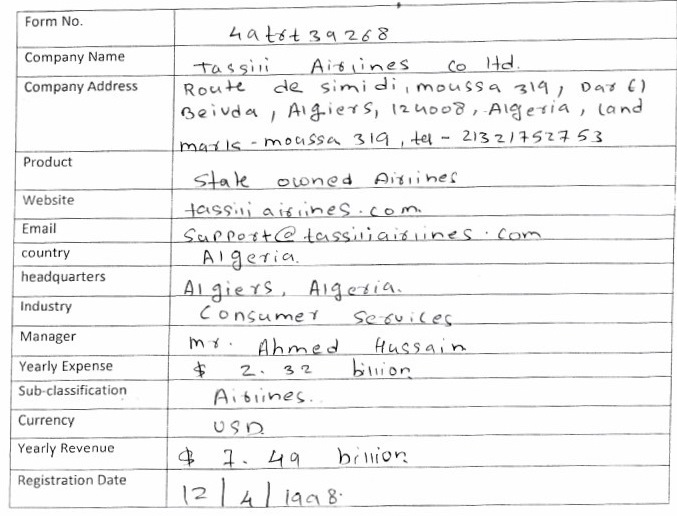 Form No. 4atrt39268
Company Name Tassili Airlines Co ltd.
Company Address Route de simidi, moussa 319, Dar El
Beivda, Algiers, 124008, Algeria, land
mark - moussa 319, tel - 21321752753
Product State owned Airlines
Website tassiliairlines.com.
Email Support@tassiliairlines.com
country Algeria.
headquarters Algiers, Algeria.
Industry Consumer Services
Manager Mr. Ahmed Hussain
Yearly Expense $ 2.32 billion
Sub-classification Airlines.
Currency USD
Yearly Revenue $ 7.49 billion
Registration Date 12/4/1998.